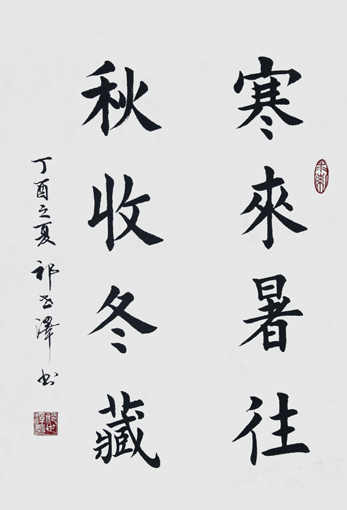 寒來暑往
秋收冬藏
丁酉之夏 祁世澤书